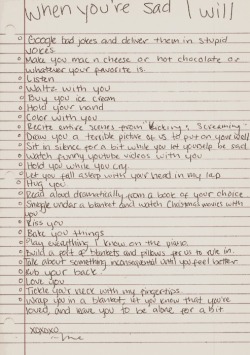 When you're sad I will
Google bad jokes and deliver them in stupid
voices
Make you mac n cheese or hot chocolate or
whatever your favorite is.
Listen
Waltz with you
Buy you ice cream
Hold your hand
Color with you
Recite entire scenes from "Kicking & Screaming"
Draw you a terrible picture of us to put on your wall
Sit in silence for a bit while you let yourself be sad
Watch funny youtube videos with you
Hold you while you cry
Let you fall asleep with your head in my lap
Hug you
Read aloud dramatically from a book of your choice
Snuggle under a blanket and watch Christmas movies with
you
Kiss you
Bake you things
Play everything I know on the piano
Build a fort of blankets and pillows for us to hide in
Talk about something inconsequential until you feel better
Rub your back
Love you
Tickle your neck with my fingertips
Wrap you in a blanket, let you know that you're
loved, and leave you to be alone for a bit
xoxoxo
~me